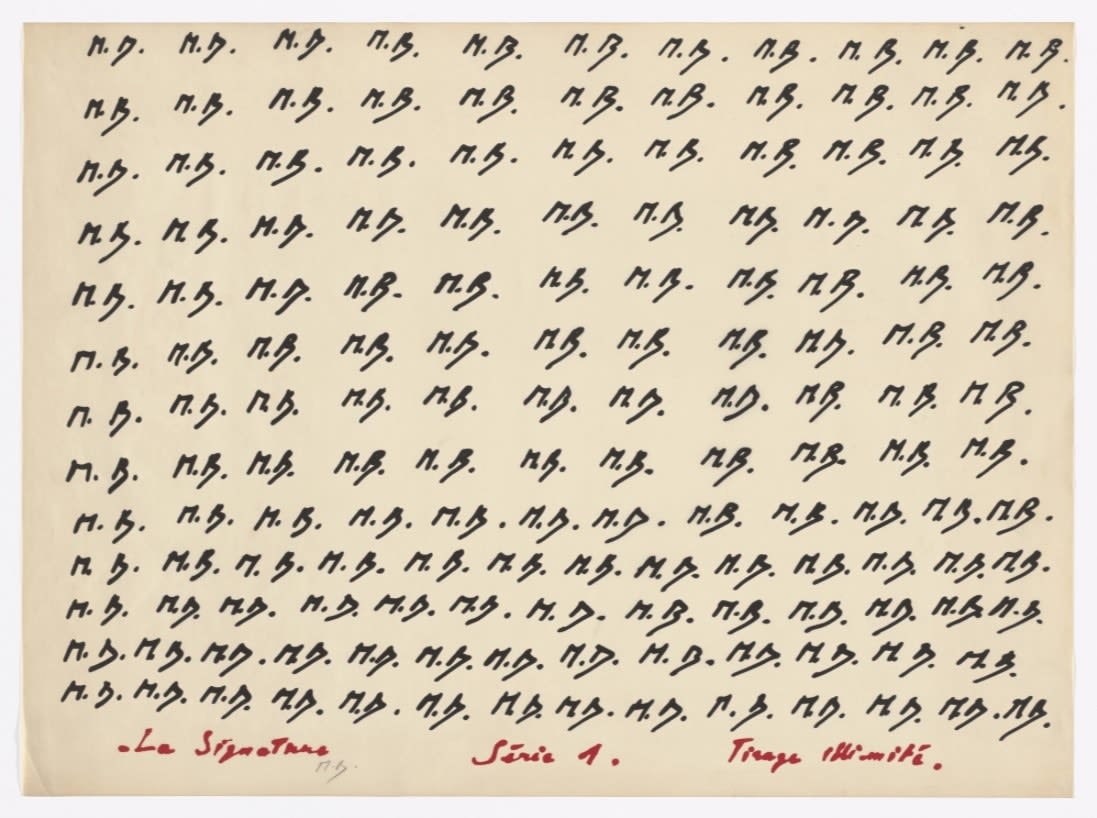 M.B. M.B. M.B. M.B. M.B. M.B. M.B. M.B. M.B. M.B. M.B.
M.B. M.B. M.B. M.B. M.B. M.B. M.B. M.B. M.B. M.B. M.B.
M.B. M.B. M.B. M.B. M.B. M.B. M.B. M.B. M.B. M.B. M.B.
M.B. M.B. M.B. M.B. M.B. M.B. M.B. M.B. M.B. M.B. M.B.
M.B. M.B. M.B. M.B. M.B. M.B. M.B. M.B. M.B. M.B. M.B.
M.B. M.B. M.B. M.B. M.B. M.B. M.B. M.B. M.B. M.B. M.B.
M.B. M.B. M.B. M.B. M.B. M.B. M.B. M.B. M.B. M.B. M.B.
M.B. M.B. M.B. M.B. M.B. M.B. M.B. M.B. M.B. M.B. M.B.
M.B. M.B. M.B. M.B. M.B. M.B. M.B. M.B. M.B. M.B. M.B. M.B.
M.B. M.B. M.B. M.B. M.B. M.B. M.B. M.B. M.B. M.B. M.B. M.B. M.B.
M.B. M.B. M.B. M.B. M.B. M.B. M.B. M.B. M.B. M.B. M.B. M.B. M.B.
M.B. M.B. M.B. M.B. M.B. M.B. M.B. M.B. M.B. M.B. M.B. M.B. M.B.
M.B. M.B. M.B. M.B. M.B. M.B. M.B. M.B. M.B. M.B. M.B. M.B. M.B. M.B.
. La Signature Série 1. Tirage illimité.
M.B.